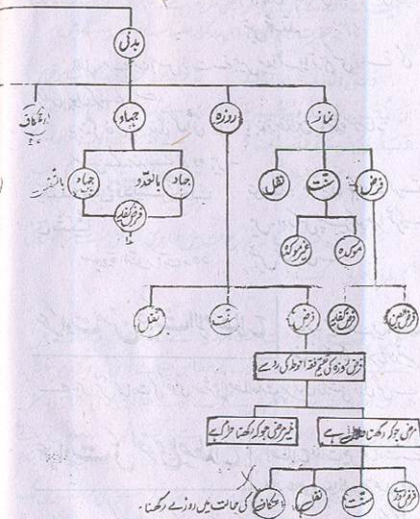 بدنی
نماز
روزہ
جہاد
اعتکاف
فرض
سنت
نفل
جہاد بالعدو
جہاد بالنفس
فرض کفایہ
موکدہ
غیر موکدہ
فرض عین
فرض کفایہ
فرض
سنت
نفل
فرض روزہ کی تقسیم فقہ احوط کی رو سے
فرض جو کہ رکھنا ہے
غیر فرض جو کہ رکھنا حرام ہے
فرض روزے
سنت
نفل
اعتکاف کی حالت میں روزے رکھنا۔